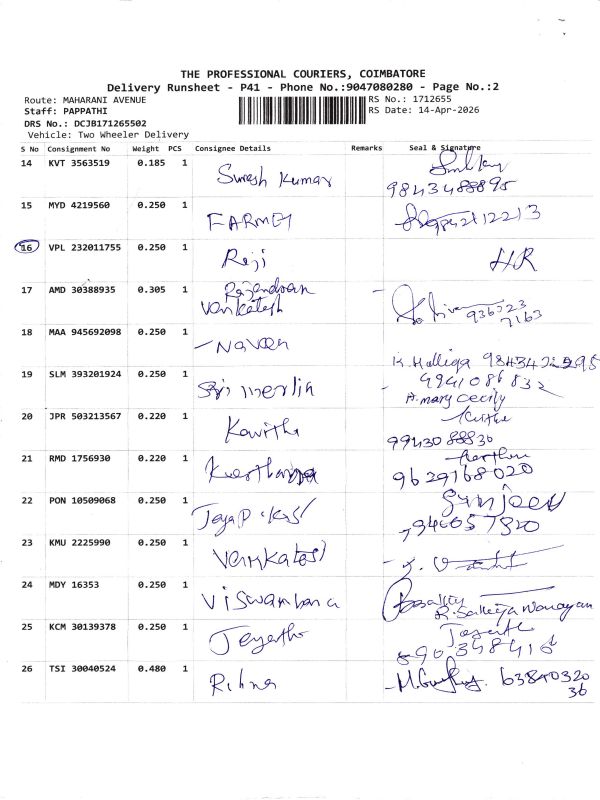 THE PROFESSIONAL COURIERS, COIMBATORE
Delivery Runsheet - P41 - Phone No.:9047080280 - Page No.:2
Route: MAHARANI AVENUE
RS No.: 1712655
Staff: PAPPATHI
RS Date: 14-Apr-2026
DRS No.: DCJB171265502
Vehicle: Two Wheeler Delivery
S No Consignment No Weight PCS Consignee Details Remarks Seal & Signature
14 KVT 3563519 0.185 1 Suresh Kumar
9843488895
15 MYD 4219560 0.250 1 FARMEY
16 VPL 232011755 0.250 1 Reji HR
17 AMD 30388935 0.305 1 Rajendran
Venkatesh
18 MAA 945692098 0.250 1 Naveen
19 SLM 393201924 0.250 1 Sri merlin
A. mary Cecily
20 JPR 503213567 0.220 1 Kavitha
9943088836
21 RMD 1756930 0.220 1 Keerthana
9629168020
22 PON 10509068 0.250 1 Sanjeev
23 KMU 2225990 0.250 1 Venkatesh
24 MDY 16353 0.250 1 Viswambara
25 KCM 30139378 0.250 1 Jeyantha
26 TSI 30040524 0.480 1 Rihna 63840320
36